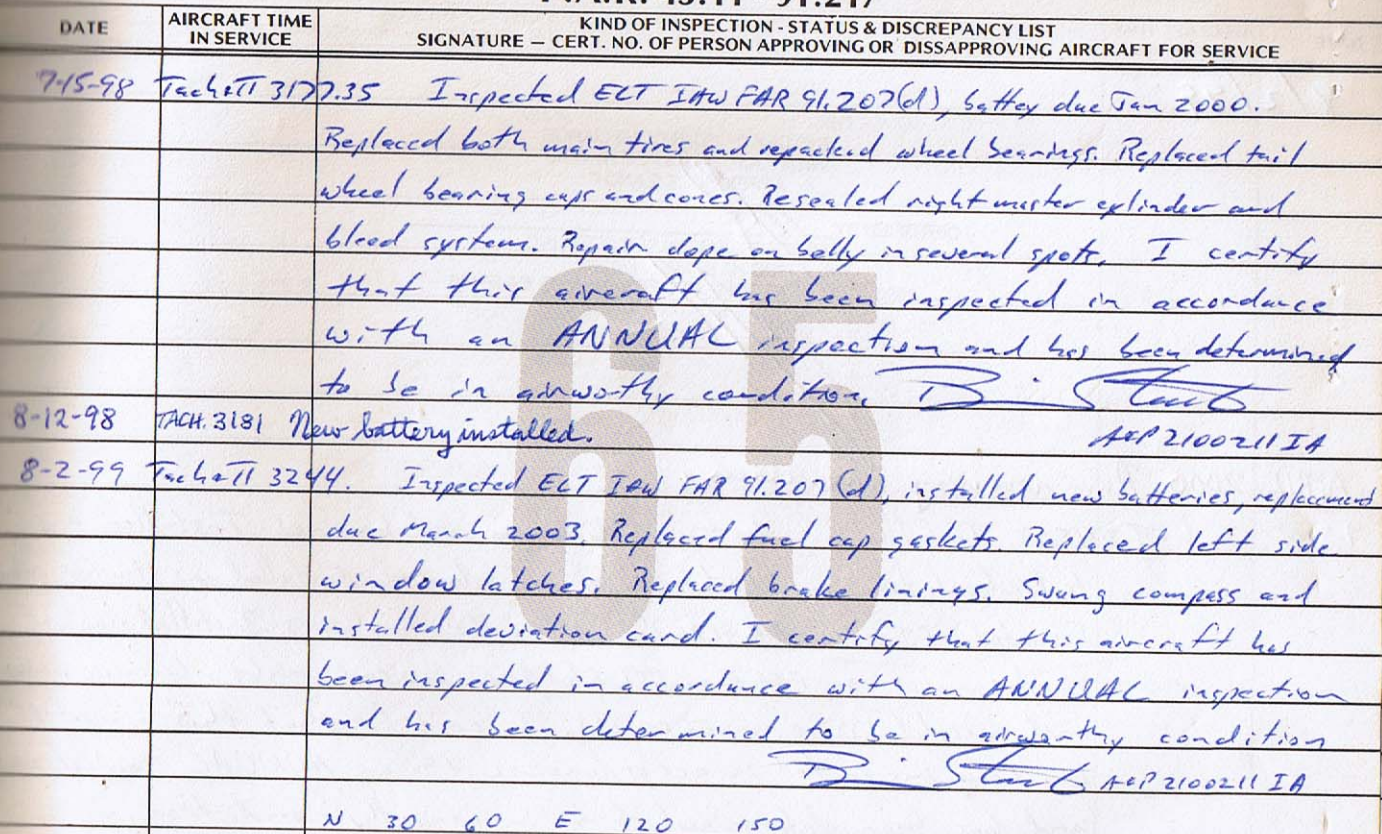 F.A.R. 43.11 91.217
DATE AIRCRAFT TIME IN SERVICE KIND OF INSPECTION - STATUS & DISCREPANCY LIST
SIGNATURE — CERT. NO. OF PERSON APPROVING OR DISSAPPROVING AIRCRAFT FOR SERVICE
7-15-98 Tach & TT 3177.35 Inspected ELT IAW FAR 91.207(d), battey due Jan 2000.
Replaced both main tires and repacked wheel bearings. Replaced tail
wheel bearing cups and cones. Resealed right master cylinder and
bleed system. Repair dope on belly in several spots. I certify
that this aircraft has been inspected in accordance
with an ANNUAL inspection and has been determined
to be in airworthy condition.
8-12-98 TACH. 3181 New battery installed. A&P 2100211 IA
8-2-99 Tach & TT 3244. Inspected ELT IAW FAR 91.207(d), installed new batteries, replacement
due March 2003. Replaced fuel cap gaskets. Replaced left side
window latches. Replaced brake linings. Swung compass and
installed deviation card. I certify that this aircraft has
been inspected in accordance with an ANNUAL inspection
and has been determined to be in airworthy condition
A&P 2100211 IA
N 30 60 E 120 150
65